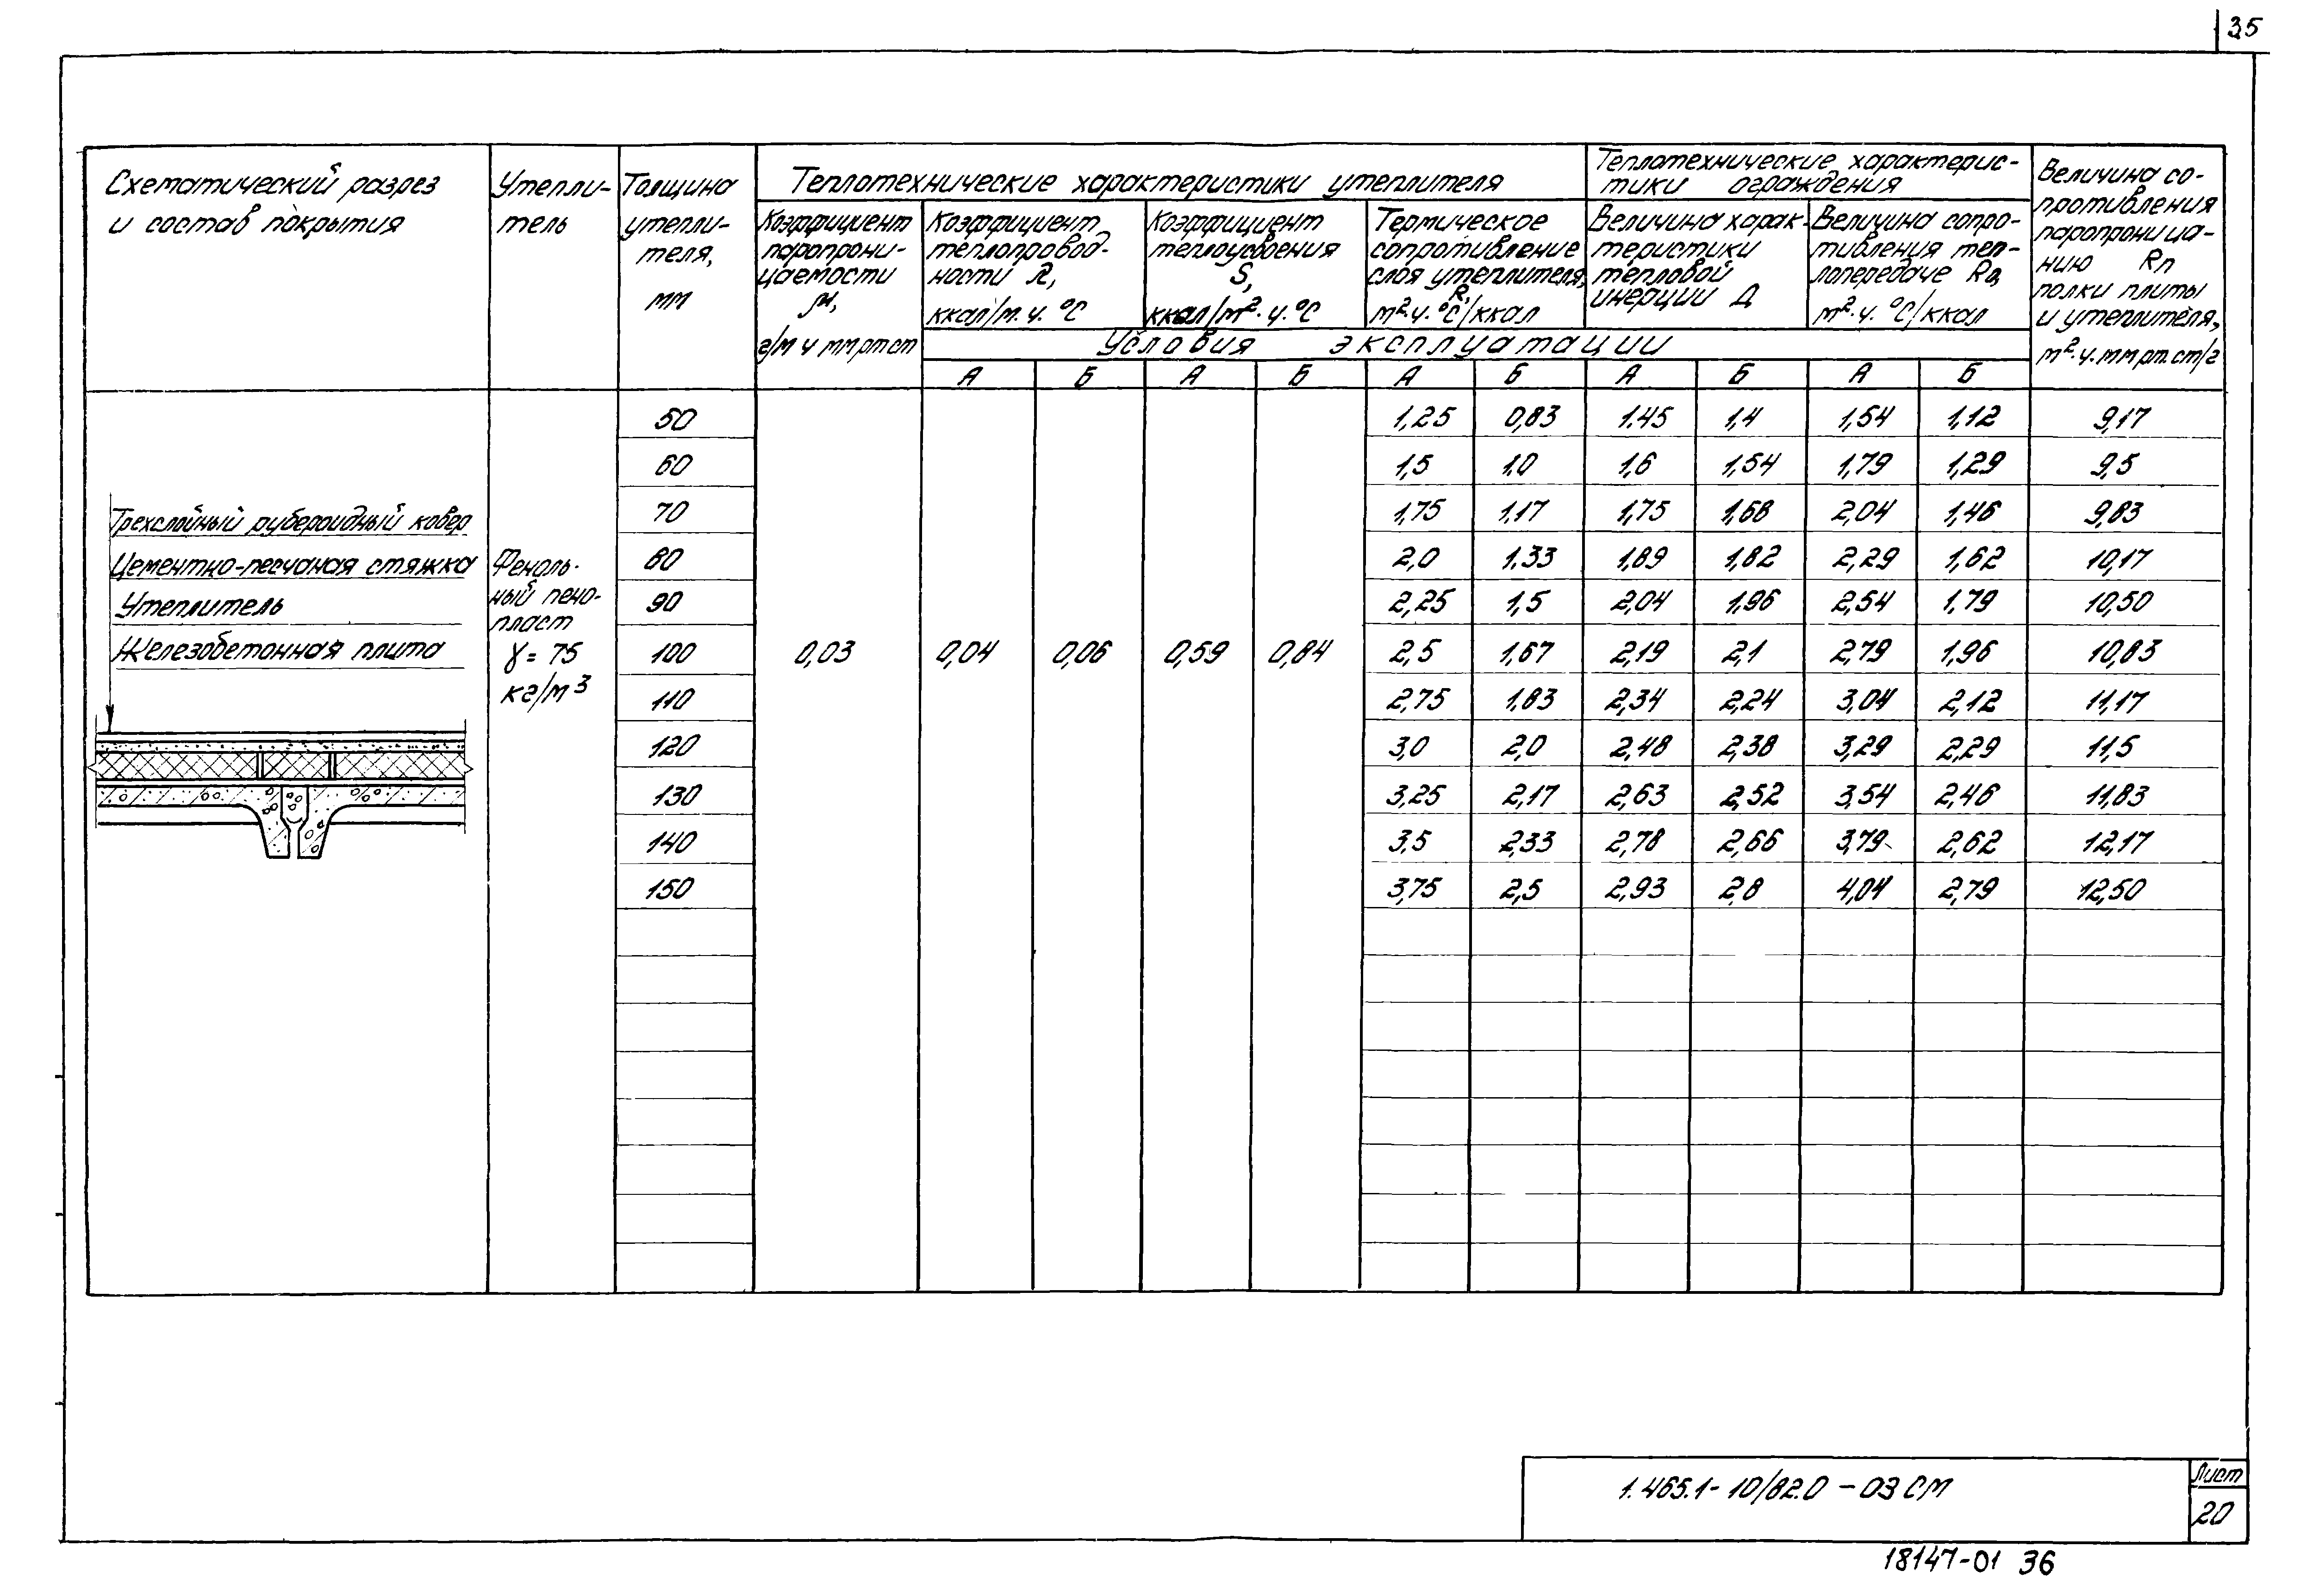 35
Схематический разрез
и состав покрытия
Утепли-
тель
Толщина
утепли-
теля,
мм
Теплотехнические характеристики утеплителя
Коэффициент
паропрони-
цаемости
μ,
г/м ч мм рт ст
Коэффициент
теплопровод-
ности λ,
ккал/м.ч.°С
Коэффициент
теплоусвоения
S,
ккал/м²·ч.°С
Термическое
сопротивление
слоя утеплителя,
R,
м²·ч.°С/ккал
Теплотехнические характерис-
тики ограждения
Величина харак-
теристики
тепловой
инерции Д
Величина сопро-
тивления теп-
лопередаче Rо,
м²·ч.°С/ккал
Величина со-
противления
паропроница-
нию Rп
полки плиты
и утеплителя,
м²·ч.мм рт.ст/г
Условия эксплуатации
А Б А Б А Б А Б А Б
50 1,25 0,83 1.45 1,4 1,54 1,12 9,17
60 1,5 1,0 1,6 1,54 1,79 1,29 9,5
70 1,75 1,17 1,75 1,68 2,04 1,46 9,83
80 2,0 1.33 1,89 1,82 2,29 1,62 10,17
90 2,25 1,5 2,04 1,96 2,54 1,79 10,50
100 0,03 0,04 0,06 0,59 0,84 2,5 1,67 2,19 2,1 2,79 1,96 10,83
110 2,75 1,83 2,34 2,24 3,04 2,12 11,17
120 3,0 2,0 2,48 2,38 3,29 2,29 11,5
130 3,25 2,17 2,63 2,52 3,54 2,46 11,83
140 3,5 2,33 2,78 2,66 3,79 2,62 12,17
150 3,75 2,5 2,93 2,8 4,04 2,79 12,50
Трехслойный рубероидный ковер
Цементно-песчаная стяжка
Утеплитель
Железобетонная плита
Феноль-
ный пено-
пласт
γ = 75
кг/м³
1.465.1-10/82.0-03СМ
Лист
20
18147-01 36